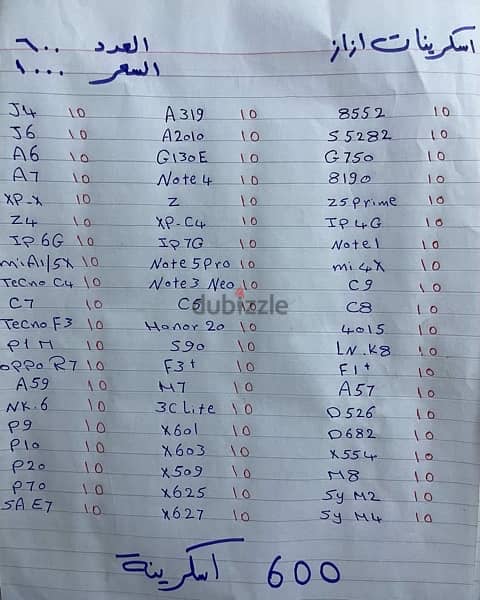 اسكرينات ازاز العدد ٦٠٠
السعر ١٠٠٠٠
J4 10 A319 10 8552 10
J6 10 A2010 10 S5282 10
A6 10 G130E 10 G750 10
A7 10 Note 4 10 8190 10
XP-X 10 Z 10 Z5 Prime 10
Z4 10 XP-C4 10 IP4G 10
IP6G 10 IP7G 10 Note1 10
mi A1/5X 10 Note 5 Pro 10 mi 4X 10
Tecno C4 10 Note 3 Neo 10 C9 10
C7 10 C5 10 C8 10
dubizzle
Tecno F3 10 Honor 20 10 4015 10
P1 M 10 S90 10 LN.K8 10
oppo R7 10 F3+ 10 F1+ 10
A59 10 M7 10 A57 10
NK.6 10 3C Lite 10 D526 10
P9 10 X601 10 D682 10
P10 10 X603 10 X554 10
P20 10 X509 10 M8 10
P70 10 X625 10 Sy M2 10
SA E7 10 X627 10 Sy M4 10
600 اسكرينة